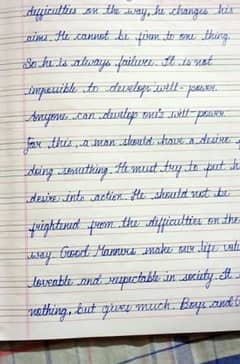 difficulties on the way, he changes his
aims. He cannot be firm to one thing.
So he is always failure. It is not
impossible to develop will-power.
Anyone can develop one's will-power.
for this, a man should have a desire
doing something. He must try to put
desire into action. He should not be
frightened from the difficulties on the
way. Good Manners make our life
loveable and respectable in society. It
nothing, but gives much. Boys and